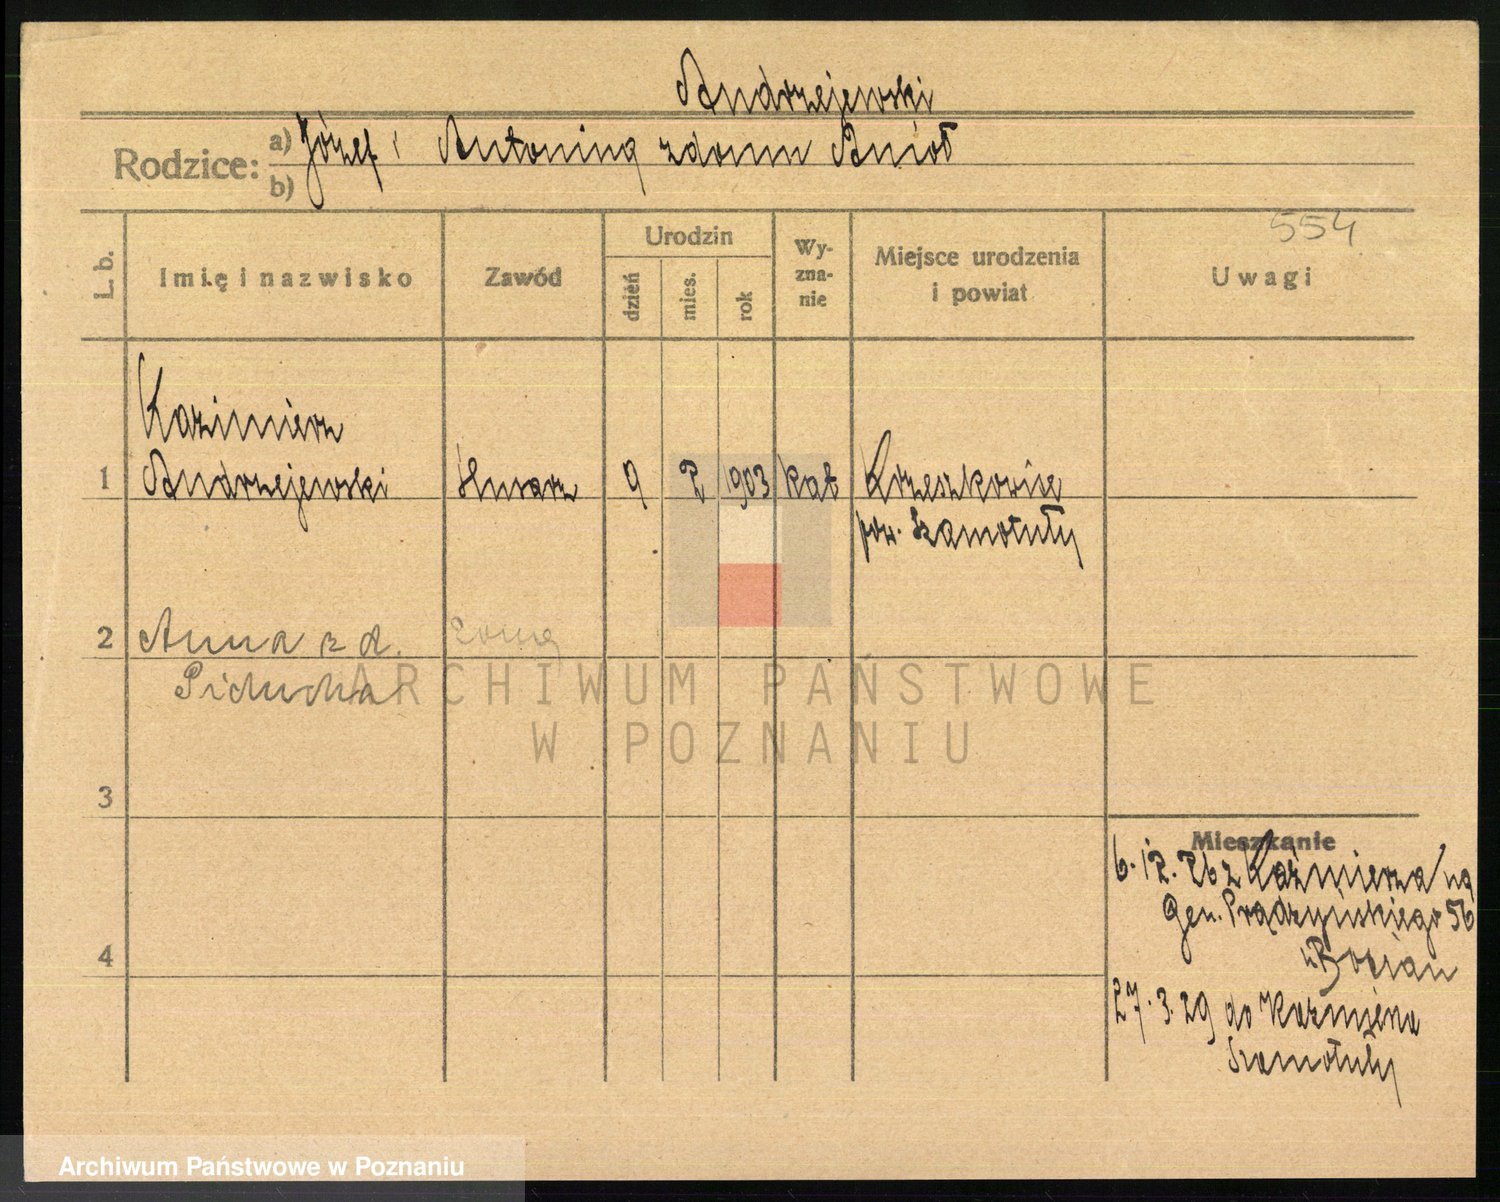 Andrzejewski
Rodzice: a) Józef i Antonina z domu Anioł
b)
554
L. b. Imię i nazwisko Zawód Urodzin dzień mies. rok Wy-zna-nie Miejsce urodzenia i powiat Uwagi
Kazimierz
1 Andrzejewski ślusarz 9 2 1903 kat
pow. Szamotuły
2 Anna z d. żona
ARCHIWUM PAŃSTWOWE
W POZNANIU
3
Mieszkanie
6.12.26 z Kaźmierza na
Gen. Prądzyńskiego 56
4
27.3.29 do Kaźmierza
Szamotuły
Archiwum Państwowe w Poznaniu